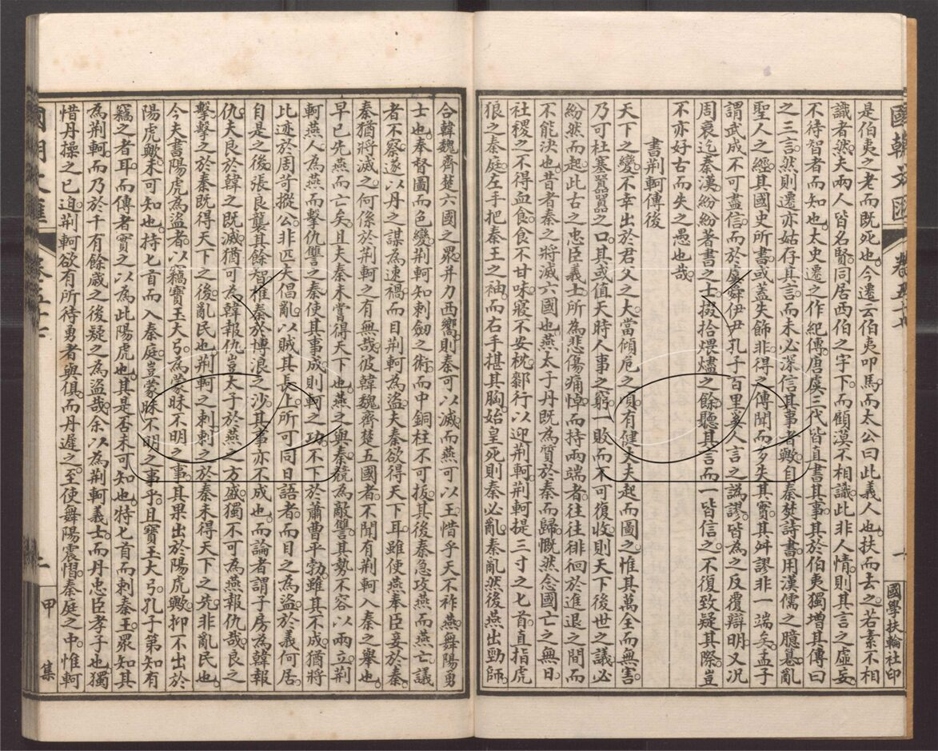 是伯夷之老而既死也今遷云伯夷叩馬而太公曰此義人也扶而去之若素不相
識者然夫兩人皆名賢同居西伯之宇下而顧漠不相識此非人情則其言之虛妄
不待智者而知也太史遷之作紀傳唐虞三代皆直書其事其於伯夷獨增其傳曰
之三言然則遷亦姑存其言而未必深信其事者歟自秦焚詩書用漢儒之臆慕亂
聖人之經其國史所書或蓋失飾非得之傳聞而多失其實其舛謬非一端矣孟子
謂武成不可盡信而於虞舜伊尹孔子百里奚人言之譌謬皆為之反覆辯明又況
周衰迄秦漢紛紛著書之士掇拾煨燼之餘聽其言而一皆信之不復致疑其際豈
不亦好古而失之愚也哉
書荆軻傳後
天下之變不幸出於君父之大當傾危之頃有健夫起而圖之惟其萬全而無害
乃可杜塞囂囂之口其或值天時人事之窮一敗而不可復收則天下後世之議必
紛然而起此古之忠臣義士所為悲傷痛悼而持兩端者往往徘徊於進退之間而
不能決也昔者秦之將滅六國也燕太子丹既為質於秦而歸慨然念國亡之無日
社稷之不得血食食不甘味寢不安枕鄰行以迎荆軻荆軻提三寸之匕首直指虎
狼之秦庭左手把秦王之袖而右手揕其胸始皇死則秦必亂秦亂然後燕出勁師
國學扶輪社印
合韓魏齊楚六國之眾并力西嚮則秦可以滅而燕可以王惜乎天不祚燕舞陽勇
士也奉督圖而色變荆軻知刺劍之術而中銅柱不可拔其後秦急攻燕而燕亡議
者不察遂以丹之謀為速禍而目荆軻為盜夫秦欲得天下耳雖使燕奉臣妾於秦
秦猶將滅之何係於荆軻之有無哉彼韓魏齊楚五國者不聞有荆軻入秦之舉也
早已先燕而亡矣且夫秦未嘗得天下也燕之與秦兢為敵讐其勢不容以兩立荆
軻燕人為燕而擊仇讐之秦使其事成則軻之功不下於蕭曹平勃雖其不成猶將
比迹於周苛摐公非匹夫倡亂以賊其長上所可同日語者而目之為盜於義何居
自是之後張良襲其餘智椎秦於博浪之沙其事亦不成也而論者謂子房為韓報
仇夫良於韓之既滅猶可為韓報仇豈太子於燕之方盛獨不可為燕報仇哉良之
擊擊之於秦既得天下之後亂民也荆軻之刺刺之於秦未得天下之先非亂民也
今夫書陽虎為盜者以竊寶玉大弓為蒙昧不明之事其果出於陽虎歟抑不出於
陽虎歟未可知也持匕首而入秦庭豈蒙昧不明之事乎且寶玉大弓孔子第知有
竊之者耳而傳者實之以為此陽虎也其是否未可知也特匕首而刺秦王眾知其
為荆軻而乃於千有餘歲之後疑之為盜哉余以為荆軻義士而丹忠臣孝子也獨
惜丹操之已迫荆軻欲有所待勇者與俱而丹遲之至使舞陽震慴秦庭之中惟軻
甲集